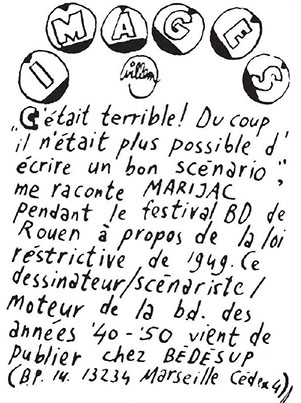 IMAGES
Willem
C'était terrible! Du coup
"il n'était plus possible d'
écrire un bon scénario",
me raconte MARIJAC
pendant le festival BD de
Rouen à propos de la loi
réstrictive de 1949. Ce
dessinateur/scénariste/
moteur de la b.d. des
années '40-'50 vient de
publier chez BÉDÉSUP
(B.P. 14. 13234 Marseille Cédex 4)